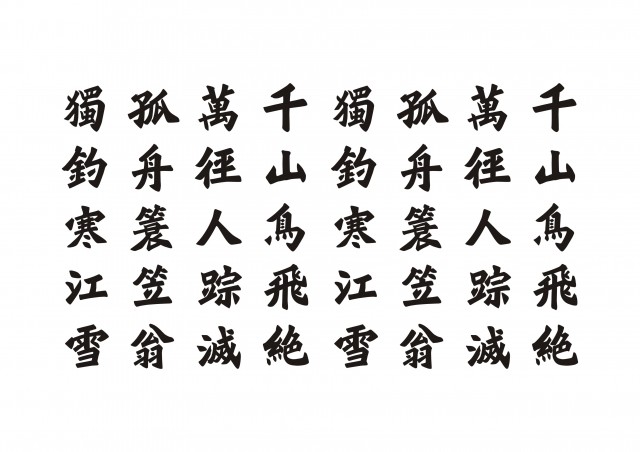 千山鳥飛絶
萬徑人踪滅
孤舟簑笠翁
獨釣寒江雪
千山鳥飛絶
萬徑人踪滅
孤舟簑笠翁
獨釣寒江雪